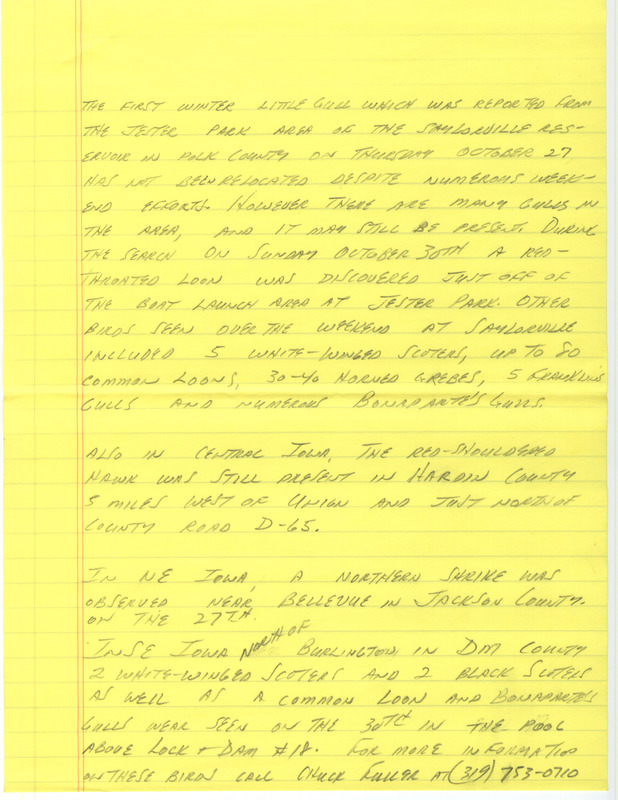 THE FIRST WINTER LITTLE GULL WHICH WAS REPORTED FROM
THE JESTER PARK AREA OF THE SAYLORVILLE RES-
ERVOIR IN POLK COUNTY ON THURSDAY OCTOBER 27,
HAS NOT BEEN RELOCATED DESPITE NUMEROUS WEEK-
END EFFORTS. HOWEVER THERE ARE MANY GULLS IN
THE AREA, AND IT MAY STILL BE PRESENT. DURING
THE SEARCH ON SUNDAY OCTOBER 30TH A RED-
THROATED LOON WAS DISCOVERED JUST OFF OF
THE BOAT LAUNCH AREA AT JESTER PARK. OTHER
BIRDS SEEN OVER THE WEEKEND AT SAYLORVILLE
INCLUDED 5 WHITE-WINGED SCOTERS, UP TO 80
COMMON LOONS, 30-40 HORNED GREBES, 5 FRANKLIN'S
GULLS AND NUMEROUS BONAPARTE'S GULLS.
ALSO IN CENTRAL IOWA, THE RED-SHOULDERED
HAWK WAS STILL PRESENT IN HARDIN COUNTY
5 MILES WEST OF UNION AND JUST NORTH OF
COUNTY ROAD D-65.
IN NE IOWA, A NORTHERN SHRIKE WAS
OBSERVED NEAR BELLEVUE IN JACKSON COUNTY.
ON THE 27TH.
IN SE IOWA NORTH OF BURLINGTON, IN DM COUNTY
2 WHITE-WINGED SCOTERS AND 2 BLACK SCOTERS
AS WELL AS A COMMON LOON AND BONAPARTE'S
GULLS WEAR SEEN ON THE 30TH IN THE POOL
ABOVE LOCK + DAM #18. FOR MORE INFORMATION
ON THESE BIRDS CALL CHUCK FULLER AT (319) 753-0710